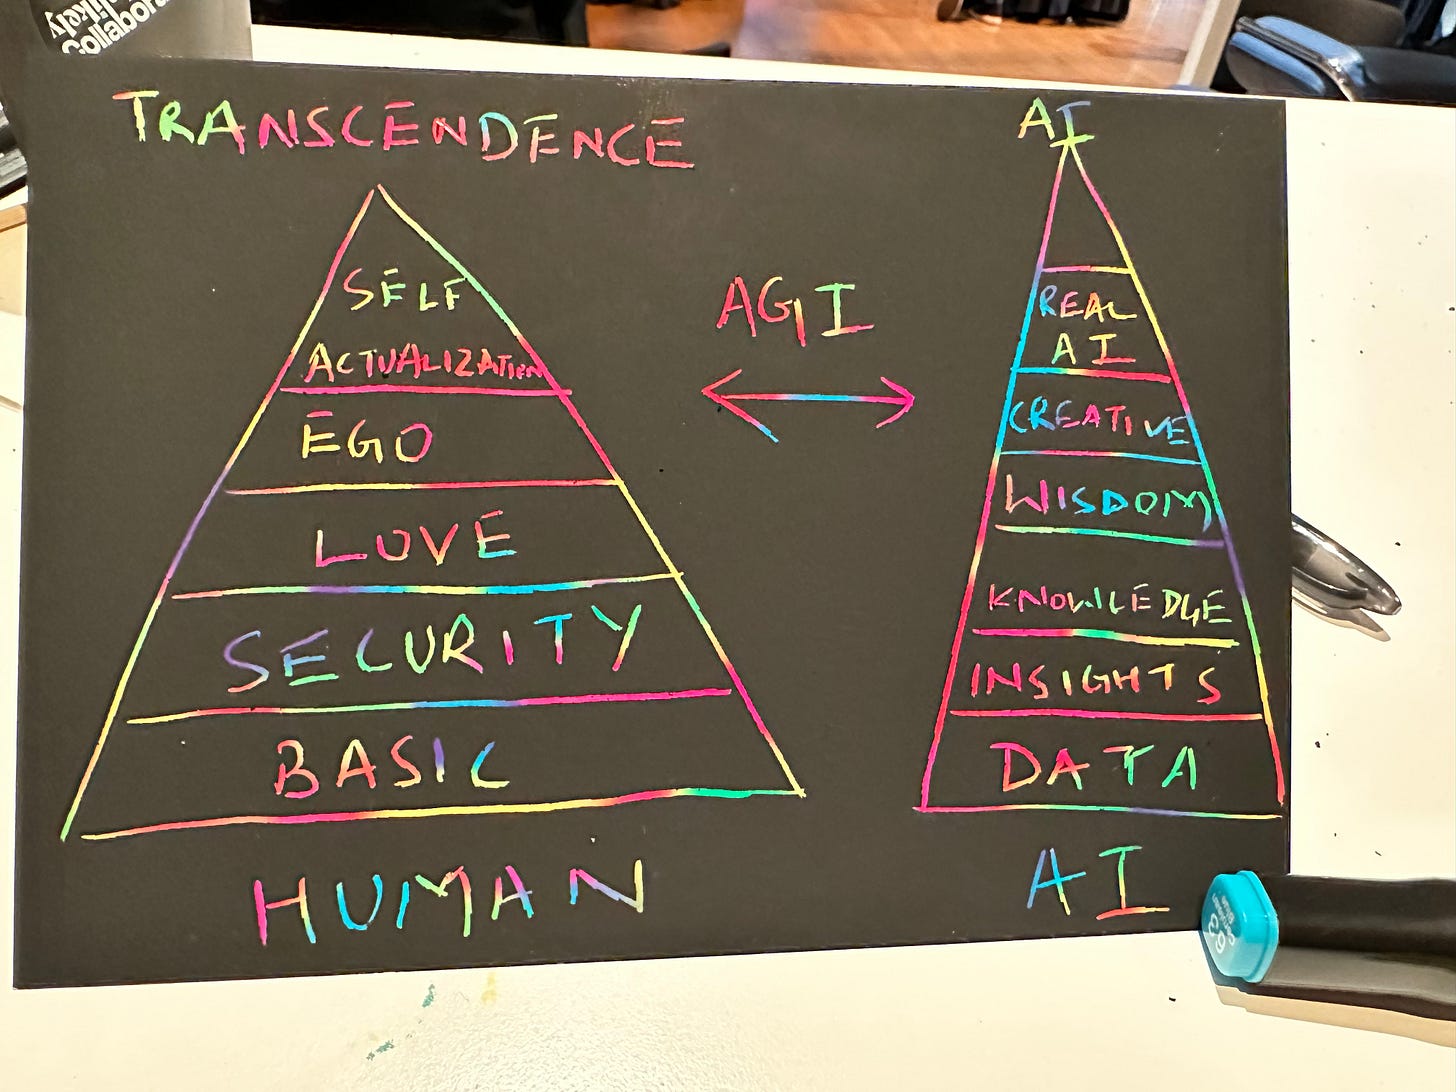 likely
Collabora
TRANSCENDENCE
SELF
ACTUALIZATION
EGO
LOVE
SECURITY
BASIC
HUMAN
AGI
AI
REAL
AI
CREATIVE
WISDOM
KNOWLEDGE
INSIGHTS
DATA
AI